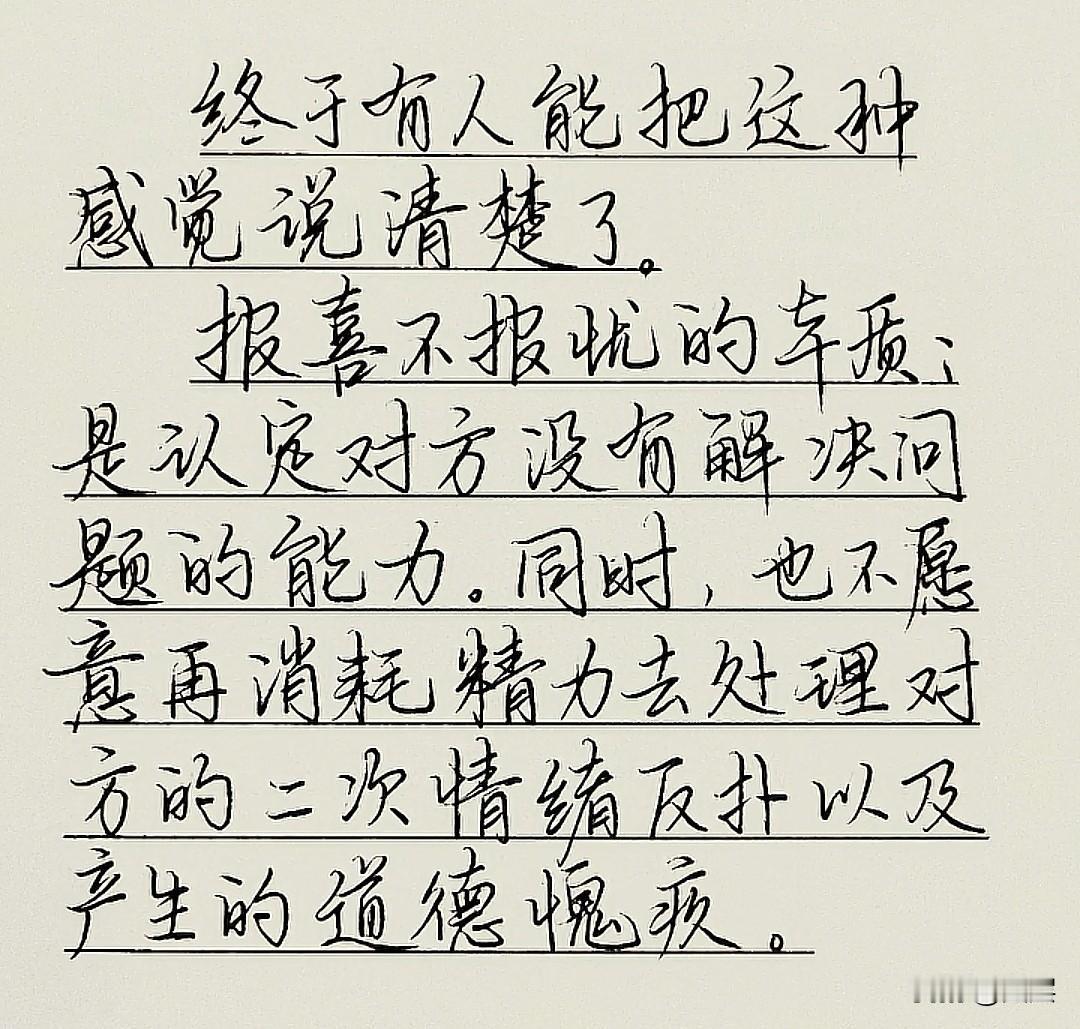 终于有人能把这种
感觉说清楚了。
报喜不报忧的本质；
是认定对方没有解决问
题的能力。同时，也不愿
意再消耗精力去处理对
方的二次情绪反扑以及
产生的道德愧疚。